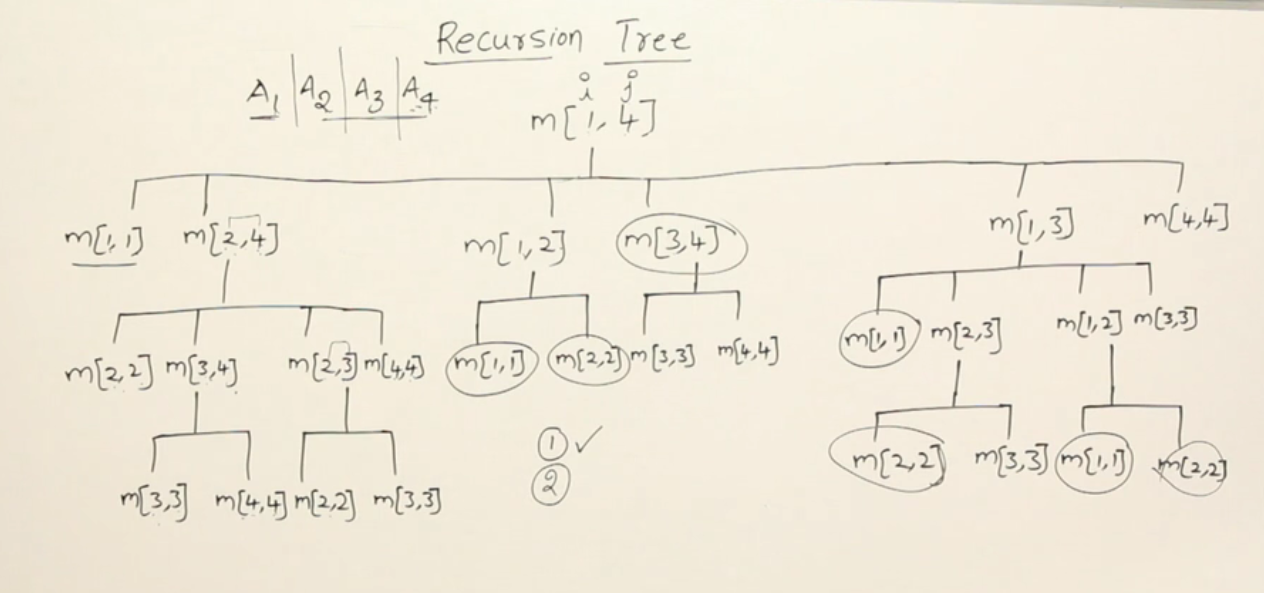 Recursion Tree
A1 | A2 | A3 | A4
i j
m[1, 4]
m[1,1] m[2,4] m[1,2] m[3,4] m[1,3] m[4,4]
m[2,2] m[3,4] m[2,3] m[4,4] m[1,1] m[2,2] m[3,3] m[4,4] m[1,1] m[2,3] m[1,2] m[3,3]
① ✓
②
m[3,3] m[4,4] m[2,2] m[3,3] m[2,2] m[3,3] m[1,1] m[2,2]